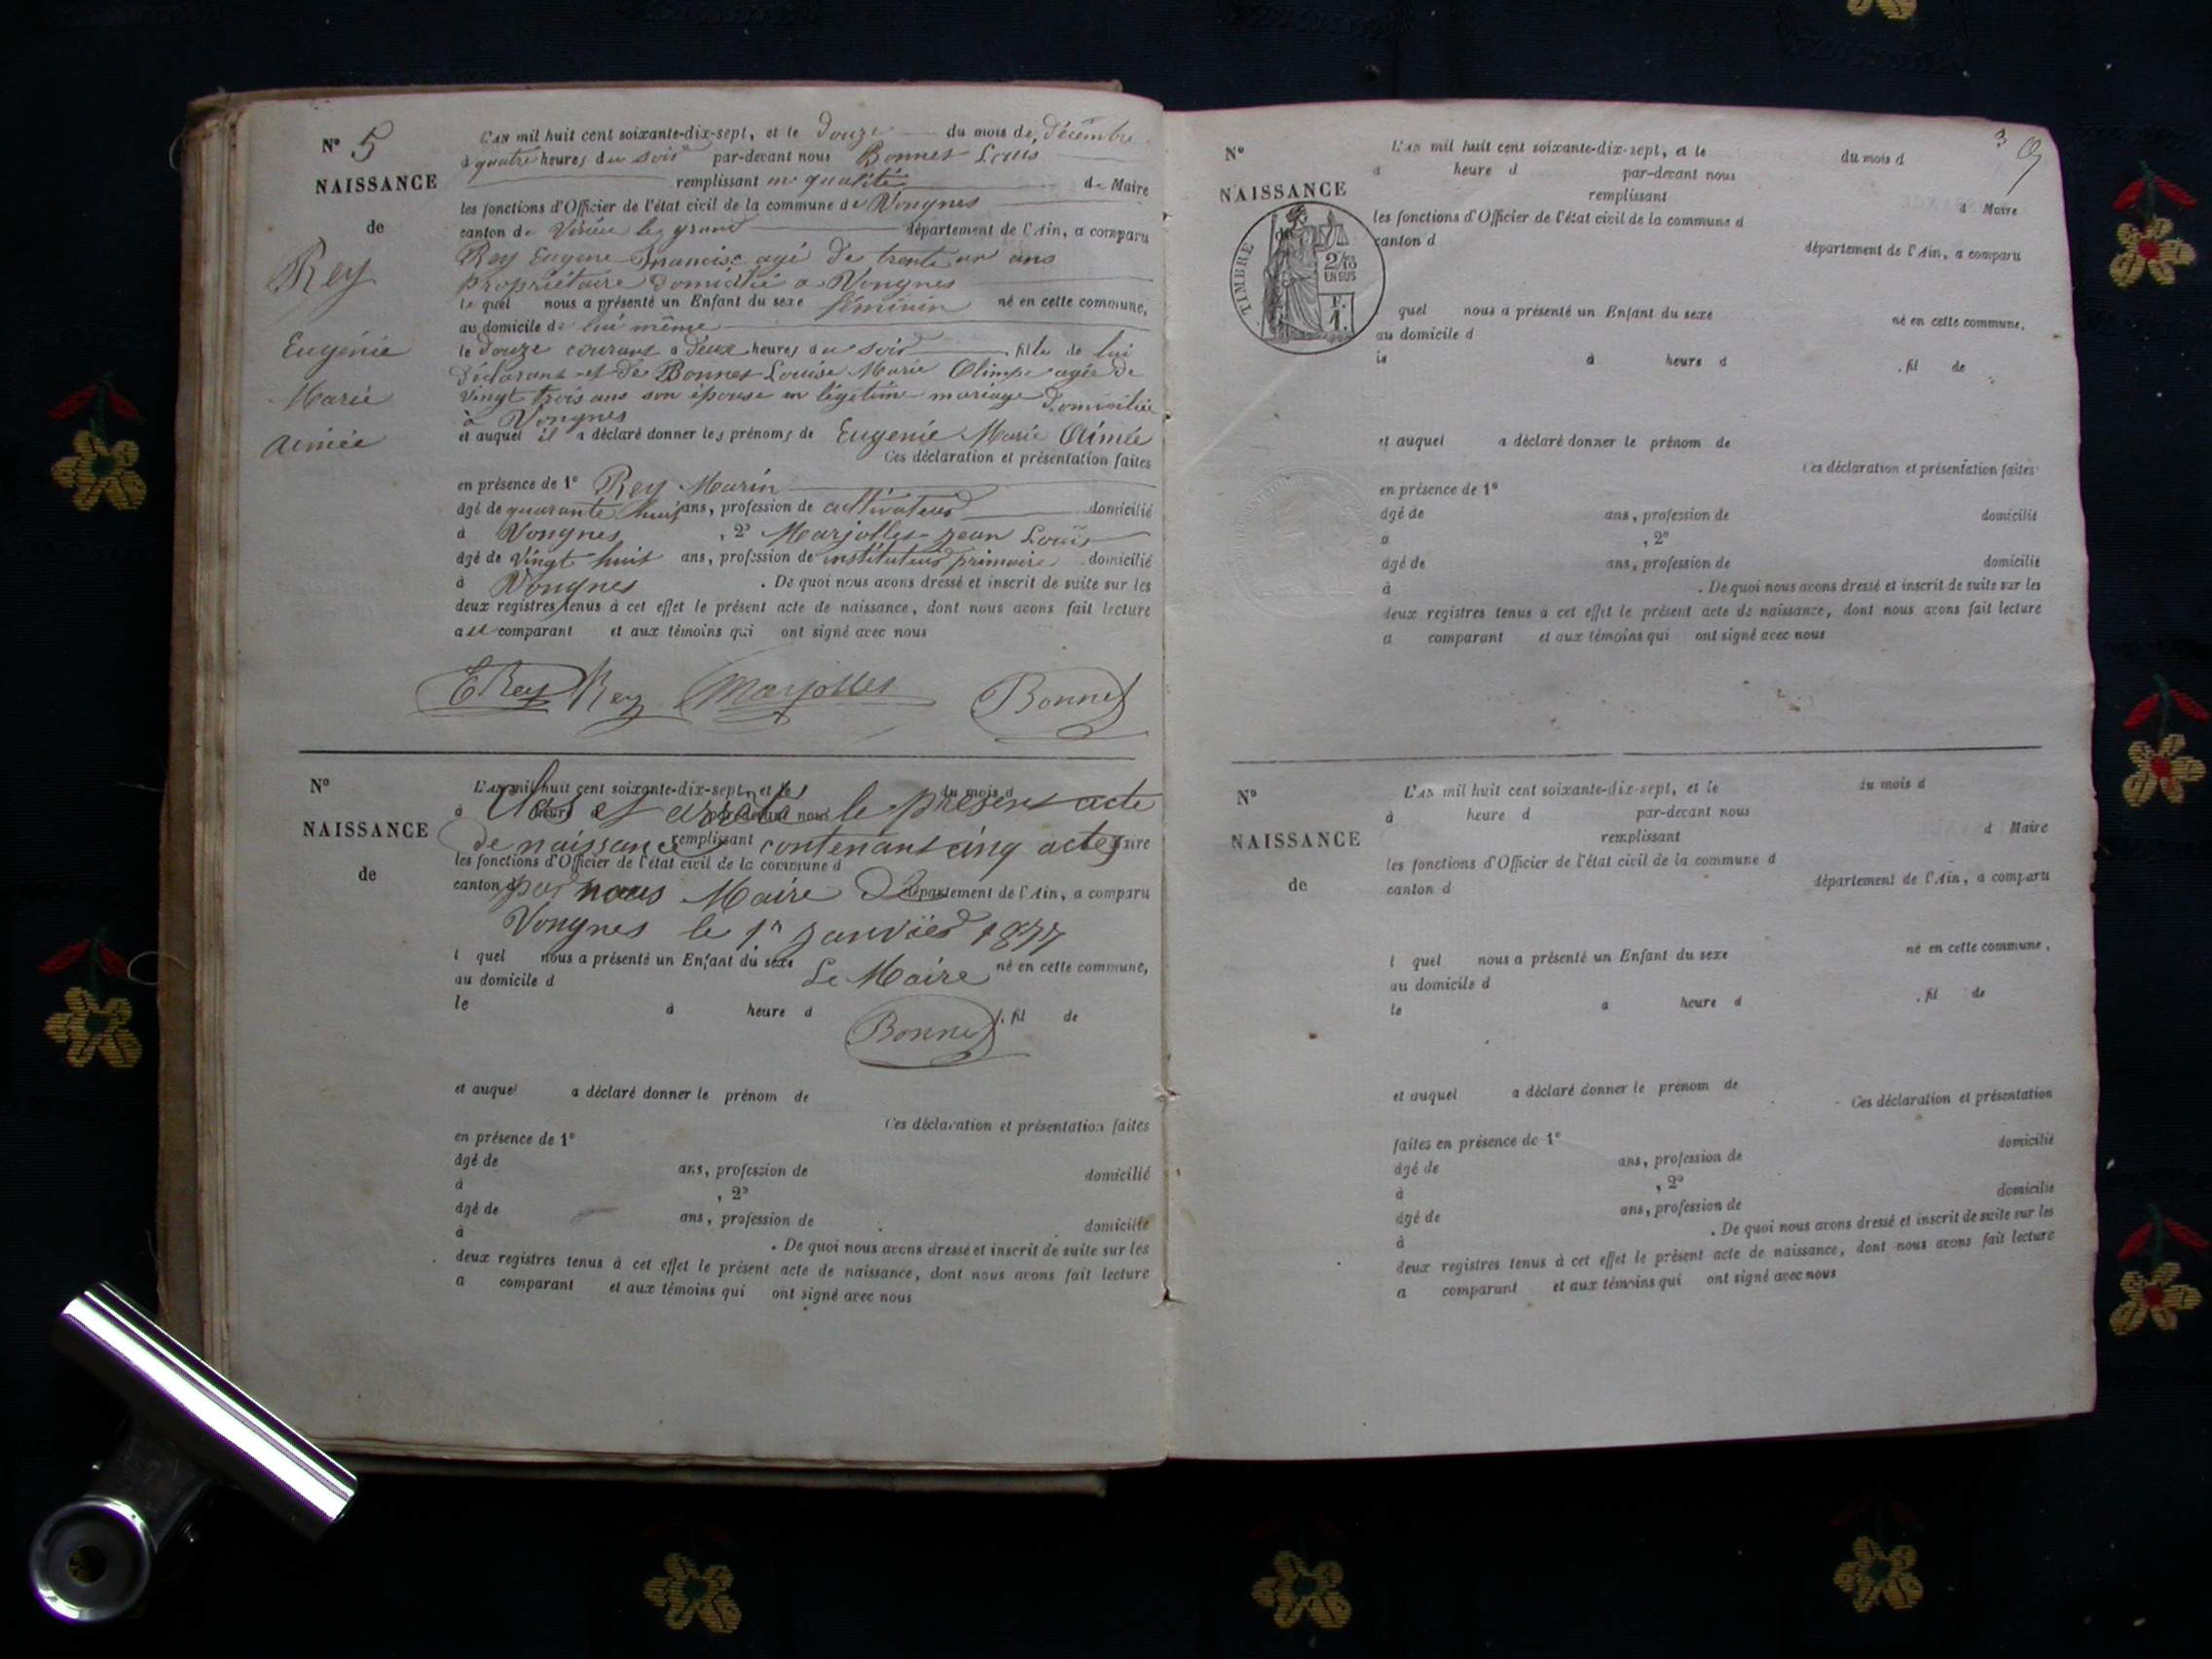 N° 5
NAISSANCE
de
Rey
Eugénie
Marie
Aimée
L'an mil huit cent soixante-dix-sept, et le douze du mois de décembre
à quatre heures du soir par-devant nous Bonnet Louis
remplissant en qualité de Maire
les fonctions d'Officier de l'état civil de la commune de Vongnes
canton de Virieu le grand département de l'Ain, a comparu
Rey Eugène Francisc agé de trente un ans
propriétaire domicilié a Vongnes
le quel nous a présenté un Enfant du sexe féminin né en cette commune,
au domicile de lui même
le douze courant à deux heures du soir , fille de lui
déclarant et de Bonnet Louise Marie Olimpe agée de
vingt trois ans son épouse en légitime mariage domiciliée
à Vongnes
et auquel il a déclaré donner les prénoms de Eugénie Marie Aimée
Ces déclaration et présentation faites
en présence de 1° Rey Marin
âgé de quarante huit ans, profession de cultivateur domicilié
à Vongnes , 2° Marjolles Jean Louis
âgé de vingt huit ans, profession de instituteur primaire domicilié
à Vongnes . De quoi nous avons dressé et inscrit de suite sur les
deux registres tenus à cet effet le présent acte de naissance, dont nous avons fait lecture
au comparant et aux témoins qui ont signé avec nous
E Rey Rey Marjolles Bonnet
N°
NAISSANCE
de
L'an mil huit cent soixante-dix-sept, et le du mois d
à heure d par-devant nous
Clos et arrêté le présent acte
remplissant Maire
de naissance contenant cinq actes
les fonctions d'Officier de l'état civil de la commune d
canton d département de l'Ain, a comparu
par nous Maire de
Vongnes le 1er janvier 1877
l quel nous a présenté un Enfant du sexe né en cette commune,
Le Maire
au domicile d
le à heure d , fil de
Bonnet
et auquel a déclaré donner le prénom de
Ces déclaration et présentation faites
en présence de 1°
âgé de ans, profession de domicilié
à , 2°
âgé de ans, profession de domicilié
à . De quoi nous avons dressé et inscrit de suite sur les
deux registres tenus à cet effet le présent acte de naissance, dont nous avons fait lecture
a comparant et aux témoins qui ont signé avec nous
N°
NAISSANCE
de
TIMBRE
2/10
EN SUS
F.
1.
L'an mil huit cent soixante-dix-sept, et le du mois d
à heure d par-devant nous
remplissant d Maire
les fonctions d'Officier de l'état civil de la commune d
canton d département de l'Ain, a comparu
quel nous a présenté un Enfant du sexe né en cette commune,
au domicile d
le à heure d , fil de
et auquel a déclaré donner le prénom de
Ces déclaration et présentation faites
en présence de 1°
âgé de ans, profession de domicilié
à , 2°
âgé de ans, profession de domicilié
à . De quoi nous avons dressé et inscrit de suite sur les
deux registres tenus à cet effet le présent acte de naissance, dont nous avons fait lecture
a comparant et aux témoins qui ont signé avec nous
N°
NAISSANCE
de
L'an mil huit cent soixante-dix-sept, et le du mois d
à heure d par-devant nous
remplissant d Maire
les fonctions d'Officier de l'état civil de la commune d
canton d département de l'Ain, a comparu
l quel nous a présenté un Enfant du sexe né en cette commune,
au domicile d
le à heure d , fil de
et auquel a déclaré donner le prénom de
Ces déclaration et présentation
faites en présence de 1° domicilié
âgé de ans, profession de
à , 2° domicilié
âgé de ans, profession de
à . De quoi nous avons dressé et inscrit de suite sur les
deux registres tenus à cet effet le présent acte de naissance, dont nous avons fait lecture
a comparant et aux témoins qui ont signé avec nous